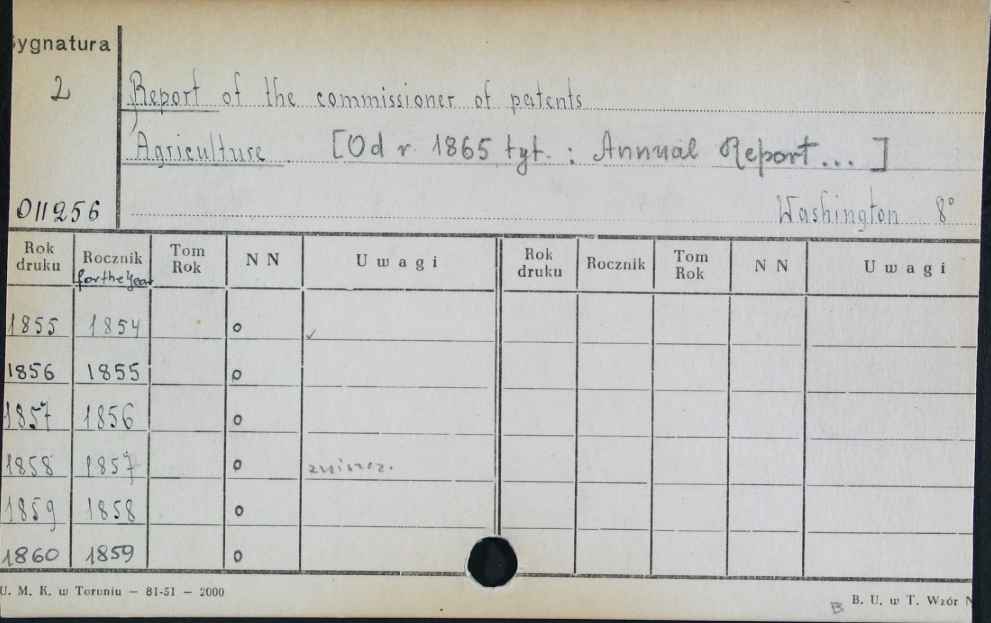 ygnatura
2
Report of the commissioner of patents
Agriculture. [Od r. 1865 tyt. : Annual Report... ]
011256
Washington 8°
Rok druku Rocznik for the year Tom Rok N N Uwagi Rok druku Rocznik Tom Rok N N Uwagi
1855 1854 o ✓
1856 1855 o
1857 1856 o
1858 1857 o zniszcz.
1859 1858 o
1860 1859 o
U. M. K. w Toruniu — 81-51 — 2000
B B. U. w T. Wzór N